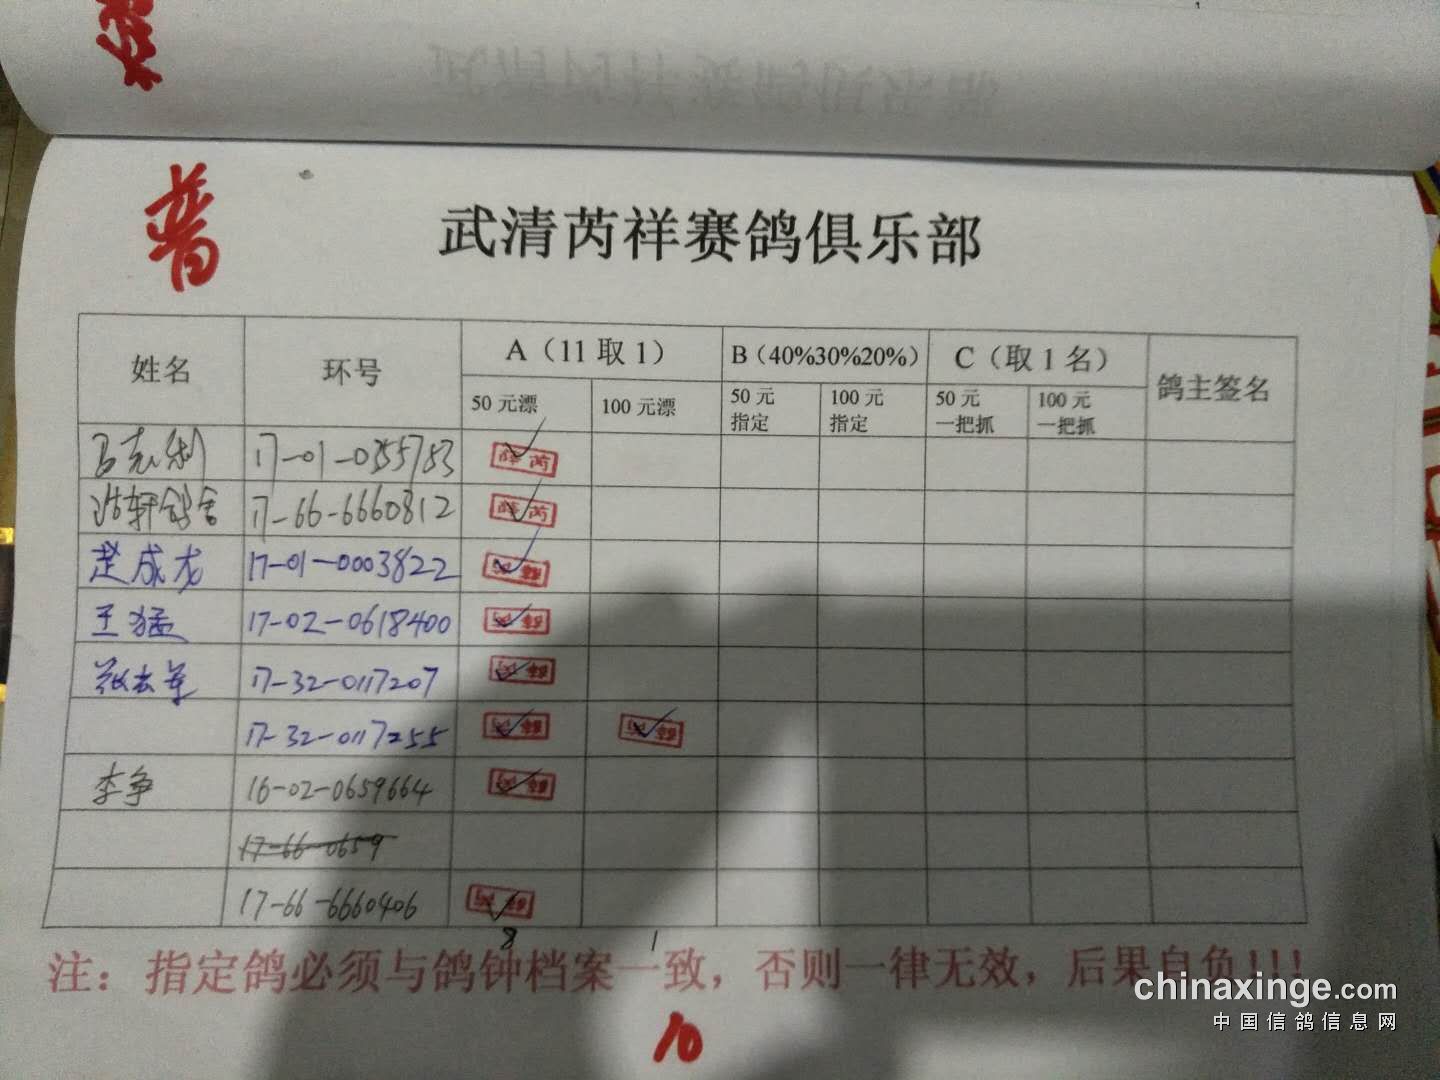 普
武清芮祥赛鸽俱乐部
姓名 环号 A（11 取 1） B（40%30%20%） C（取 1 名） 鸽主签名
50 元漂 100 元漂 50 元 指定 100 元 指定 50 元 一把抓 100 元 一把抓
17-01-0355753 薛芮
轩鸽舍 17-66-6660812 薛芮
赵成龙 17-01-0003822
王猛 17-02-0618400
17-32-0117207
17-32-0117255
李争 16-02-0659664
17-66-0659
17-66-6660406
8 1
注：指定鸽必须与鸽钟档案一致，否则一律无效，后果自负!!!
10
chinaxinge.com
中国信鸽信息网